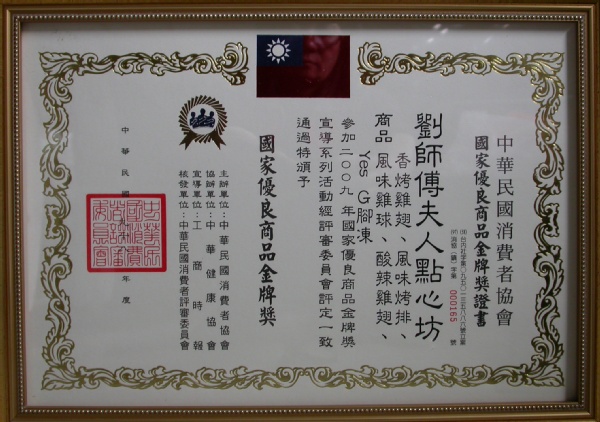 中華民國消費者協會
國家優良商品金牌獎證書
000165 號
劉師傅夫人點心坊
商品 香烤雞翅、風味烤排、
風味雞球、酸辣雞翅、
Yes G腳凍
參加二00九年國家優良商品金牌獎
宣導系列活動經評審委員會評定一致
通過特頒予
國家優良商品金牌獎
主辦單位：中華民國消費者協會
協辦單位：中華健康協會
宣導單位：工商時報
核發單位：中華民國消費者評審委員會
中華民國
年度